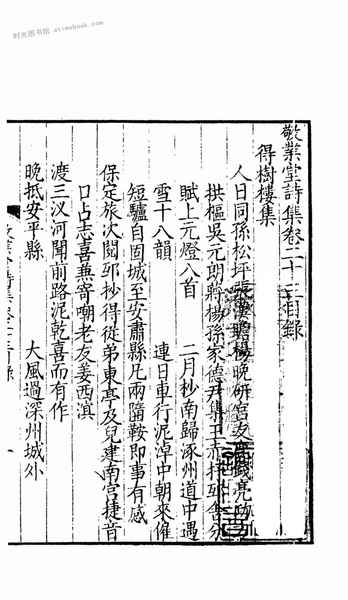 时光图书馆 atimebook.com
敬業堂詩集卷二十三目録
得樹樓集
人日同孫松坪張漢瞻楊晚研宫友
拱樞吳元朗蔣楊孫家德尹集
賦上元燈八首 二月杪南歸涿州道中遇
雪十八韻 連日車行泥淖中朝來倦
短驢自固城至安肅縣凡兩墮鞍即事有感
保定旅次閱邸抄得從弟東亭及兒建南宫捷音
口占志喜兼寄嘲老友姜西溟
渡三汊河聞前路泥乾喜而有作
晚抵安平縣 大風過深州城外